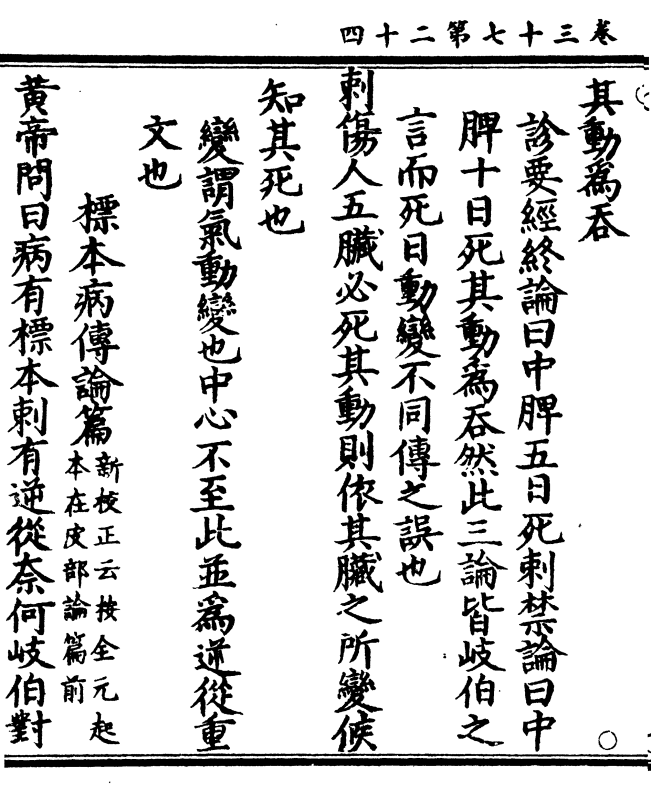 卷三十七第二十四
其動爲吞
診要經終論曰中脾五日死刺禁論曰中
脾十日死其動爲吞然此三論皆岐伯之
言而死日動變不同傳之誤也
刺傷人五臟必死其動則依其臟之所變候
知其死也
變謂氣動變也中心不至此並爲逆從重
文也
標本病傳論篇新校正云按全元起
本在皮部論篇前
黃帝問曰病有標本刺有逆從奈何岐伯對